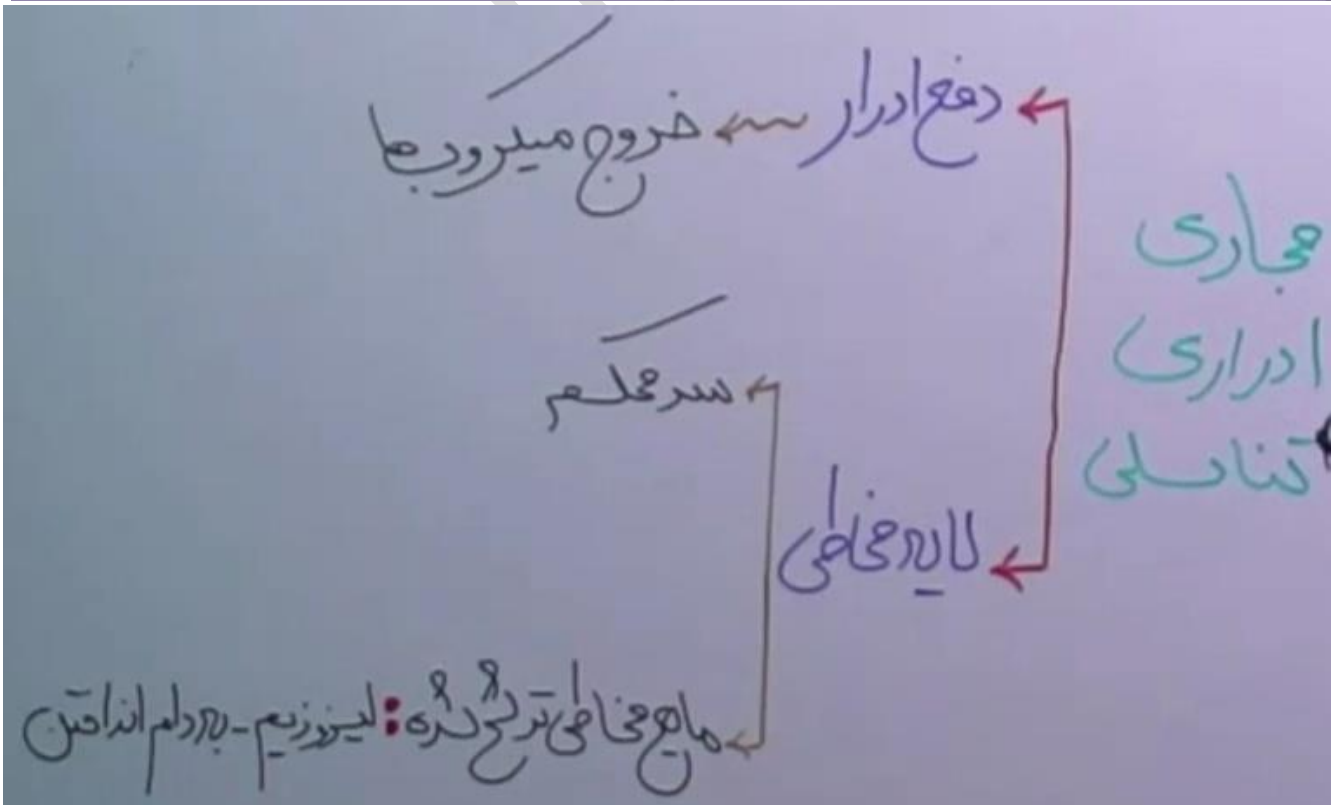 مجاری
ادراری
تناسلی
دفع ادرار
خروج میکروب‌ها
لایه مخاطی
سد محکم
مایع مخاطی ترشح شده: لیزوزیم - به دام انداختن